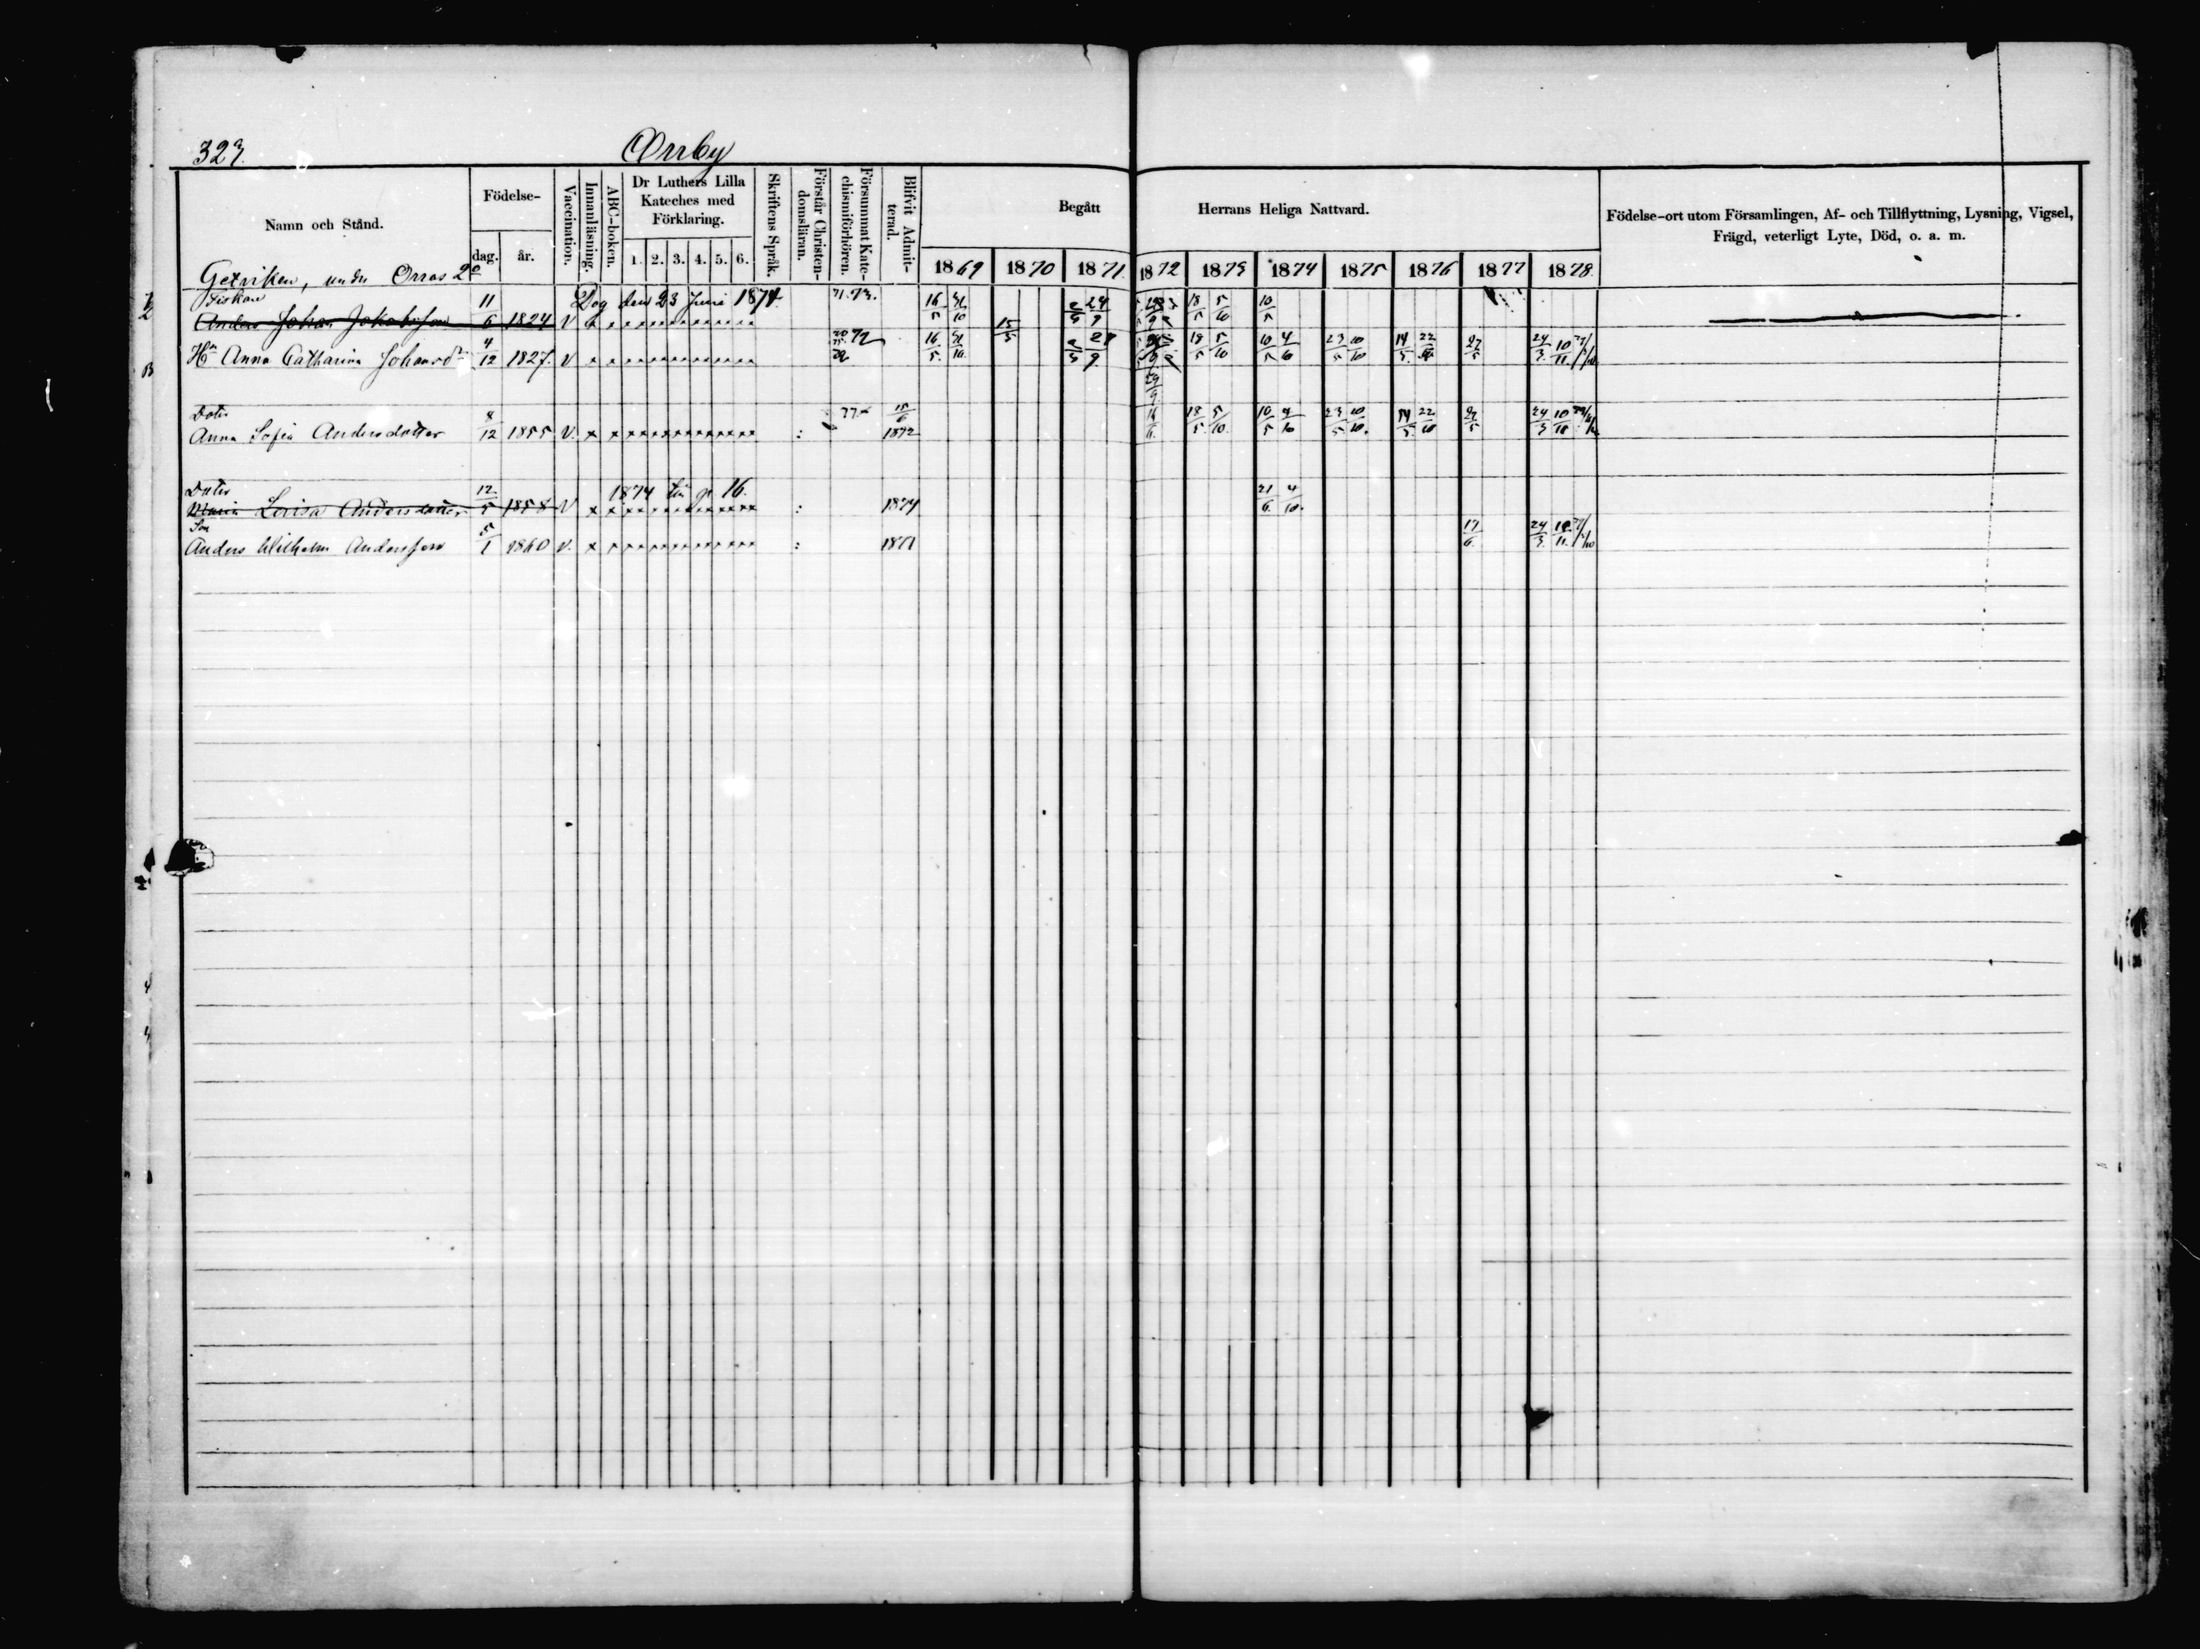 323.
Orrby
Namn och Stånd.
Födelse-
dag. år.
Vaccination.
Innanläsning.
ABC-boken.
Dr Luthers Lilla
Kateches med
Förklaring.
1. 2. 3. 4. 5. 6.
Skriftens Språk.
Förstår Christen-
domsläran.
Försummat Kate-
chismiförhören.
Blifvit Admit-
terad.
Begått Herrans Heliga Nattvard.
1869 1870 1871. 1872 1873 1874 1875 1876 1877 1878.
Födelse-ort utom Församlingen, Af- och Tillflyttning, Lysning, Vigsel,
Frägd, veterligt Lyte, Död, o. a. m.
under Orras 2
Dog den 23 Juni 1874.
Anders Johan 11/6 1824 V
16/5 15/5 18/5 5/10 10/5
Anna Catharina 4/12 1827. V
16/5. 18/5 5/10 10/5 4/10 23/5 10/10 14/5. 22/10 27/5 24/3. 10/11.
Doter
Anna Sofia Andersdotter 8/12 1855 V. 15/6 1872
16/6. 18/5. 5/10. 10/5 4/10 23/5 10/10. 14/5. 22/10 27/5 24/3 10/11
Doter 1874 16.
Maria Lovisa Andersdotter 12/5 1858 V 1874 21/6. 4/10.
Son
Anders Wilhelm Andersson 5/1 1860 V. 1877 17/6. 24/3. 10/11.